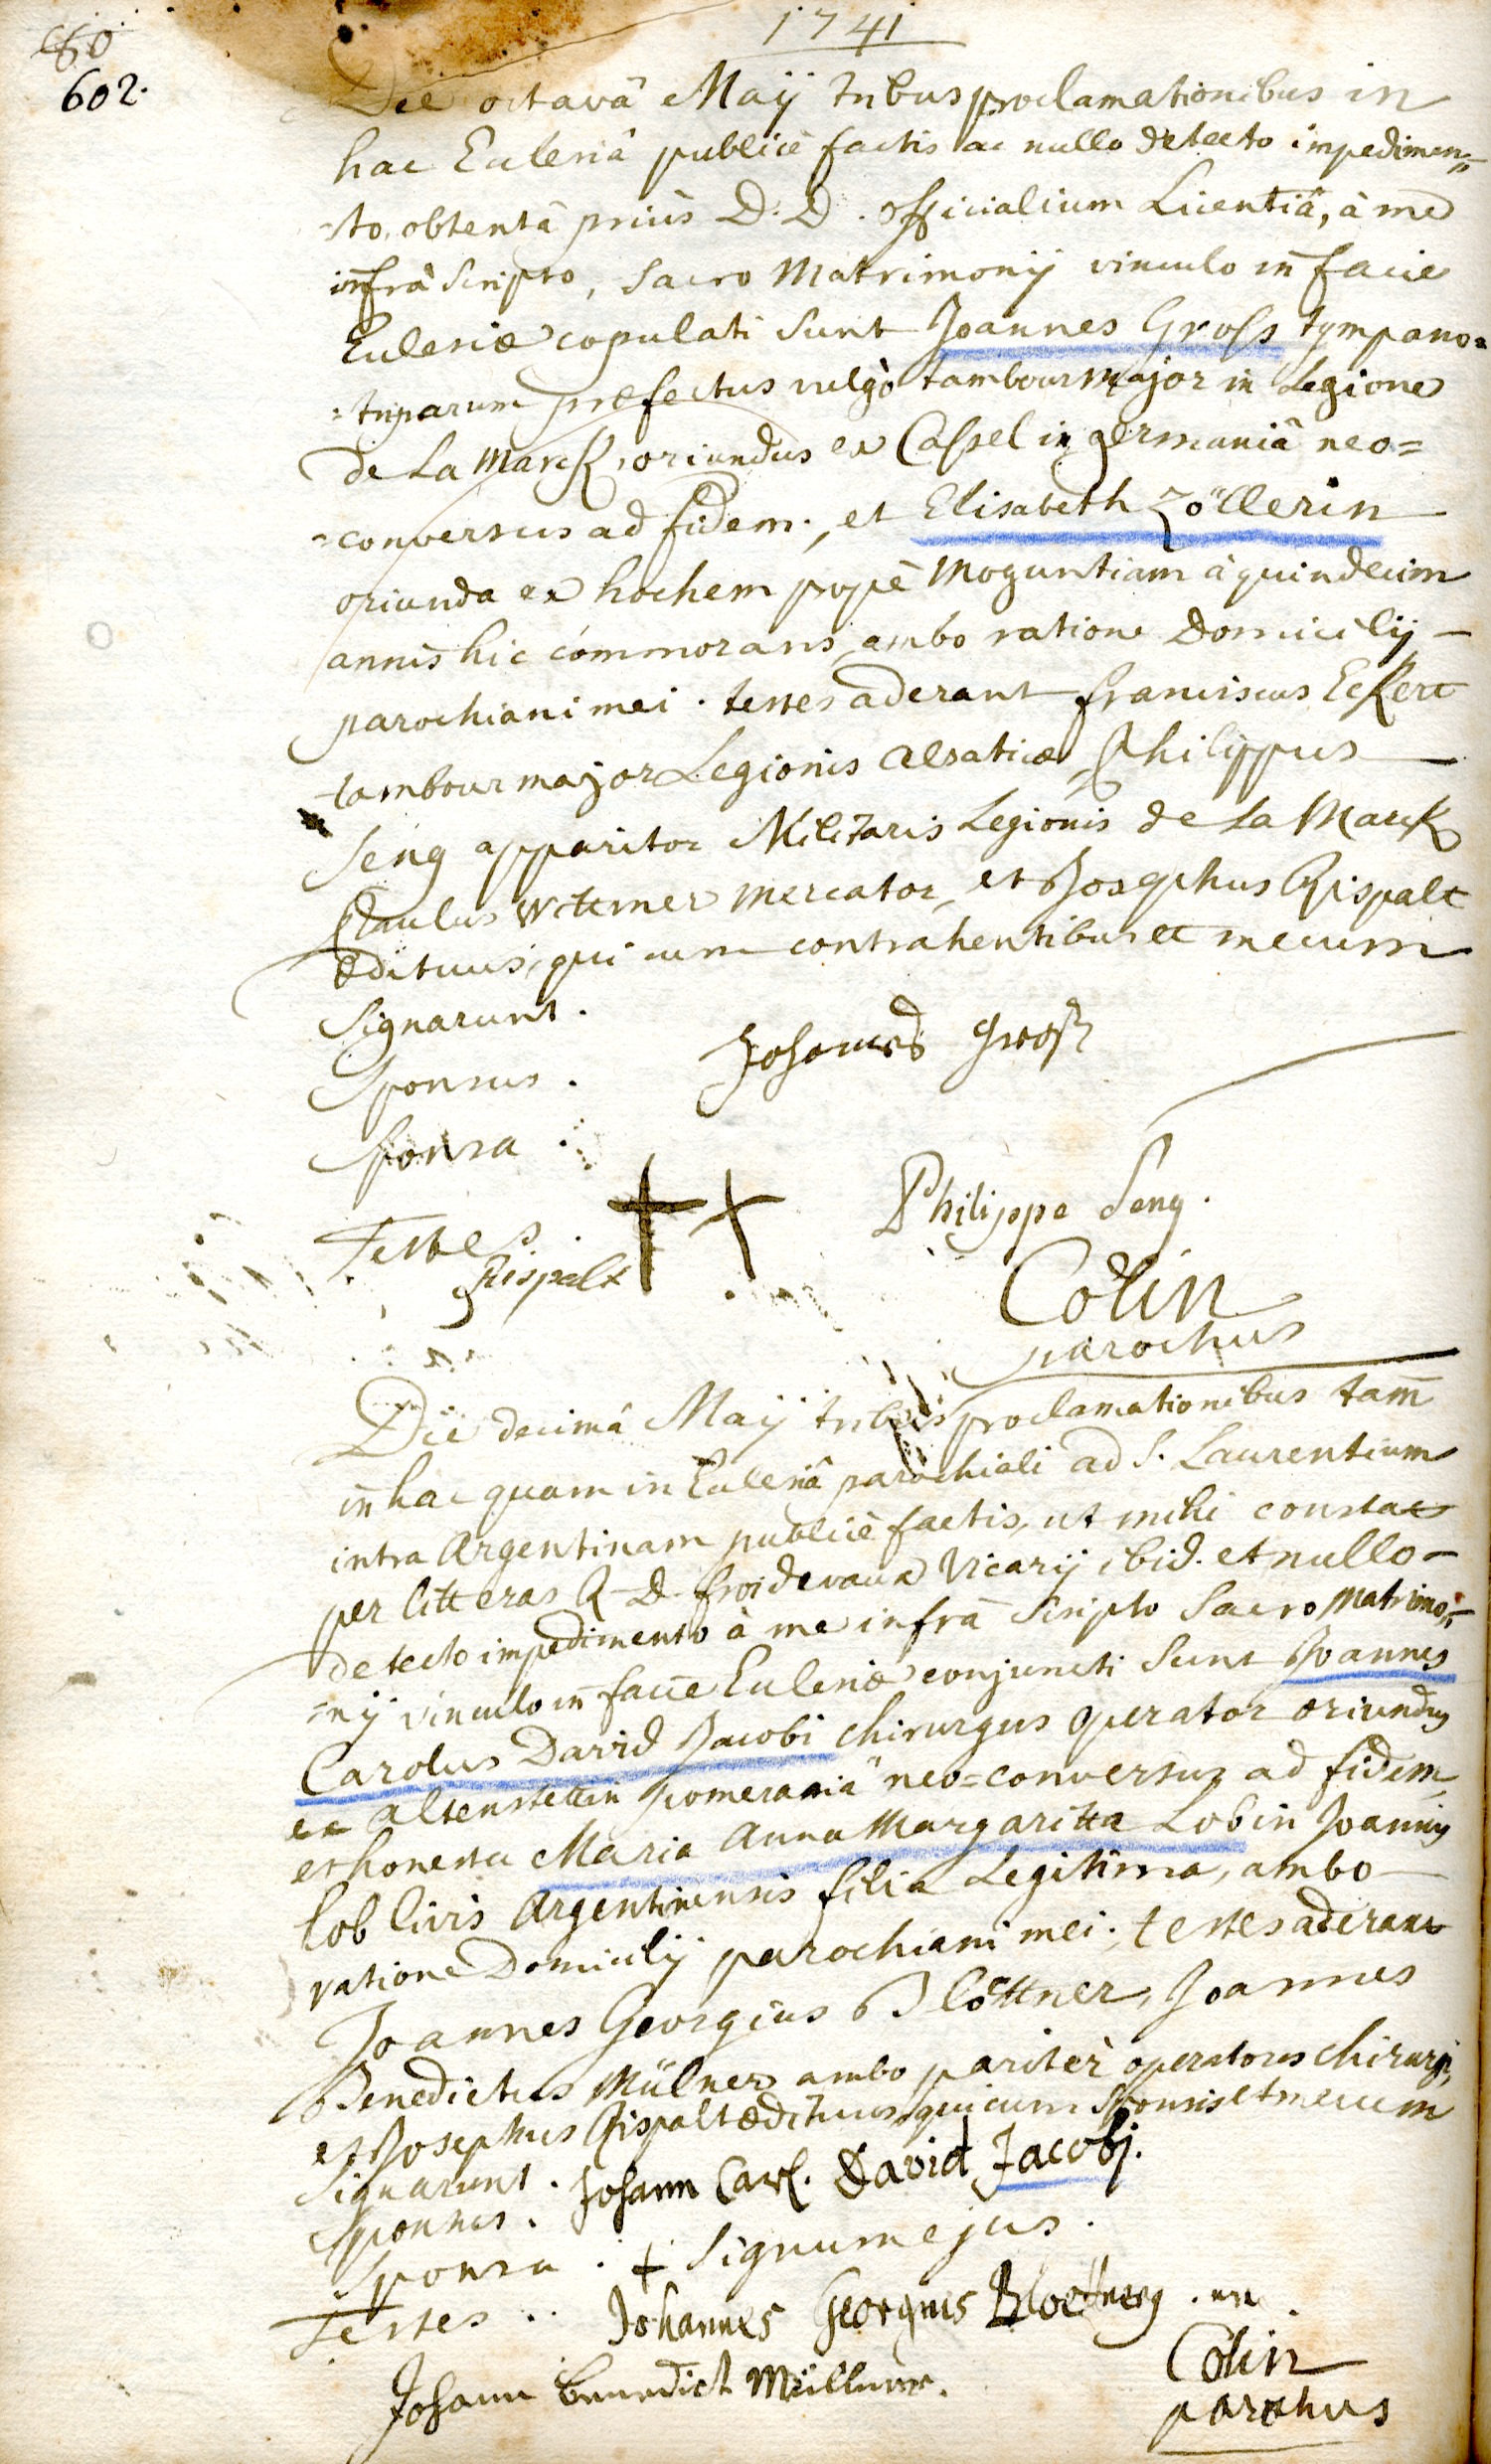 1741
60
602.
Die octavâ Maÿ tribus proclamationibus in
hac Ecclesiâ publicè factis ac nullo detecto impedimen=
=to, obtentâ priùs D. D. officialium Licentiâ, à me
infrà scripto, Sacro Matrimonÿ vinculo in facie
Ecclesiæ copulati sunt Joannes Gross tympano=
=triparum præfectus vulgò tambour major in Legione
de La Marck, oriundus ex Cassel in germaniâ neo=
=conversus ad fidem, et Elisabeth Zöllerin
oriunda ex hochem propè Moguntiam à quindecim
annis hic commorans, ambo ratione Domicilÿ
parochiani mei. testes aderant franciscus Eckert
tambour major Legionis alsaticæ, Philippus
Seng apparitor Militaris Legionis de La Marck
Paulus mercator, et Josephus Rispalt
ædituus, qui cum contrahentibus et mecum
signarunt.
Sponsus. Johannes Groß
Sponsa.
Testes ++ Philippe Seng.
Rispalt
Colin
parochus
Die decimâ Maÿ tribus proclamationibus tam
in hac quam in Ecclesiâ parochiali ad S. Laurentium
intra Argentinam publicè factis, ut mihi constat
per litteras R. D. froidevaux Vicarÿ ibid. et nullo
detecto impedimento à me infrà scripto Sacro Matrimo=
=nÿ vinculo in facie Ecclesiæ conjuncti sunt Joannes
Carolus David Jacobi chirurgus operator oriundus
ex altenstettin pomeraniâ neo=conversus ad fidem,
et honesta Maria Anna Margaritta Lobin Joannis
Lob Civis Argentinensis filia Legitima, ambo
ratione Domicilÿ parochiani mei; testes aderant
Joannes Georgius Blöttner, Joannes
Benedictus Mülner ambo pariter operatores chirurgi,
et Josephus Rispalt ædituus, qui cum sponsis et mecum
signarunt.
Sponsus. Johann Carl. David Jacobj.
Sponsa. + signum ejus.
Testes. Johannes Georgius
Johann Benedict Müllner.
Colin
parochus